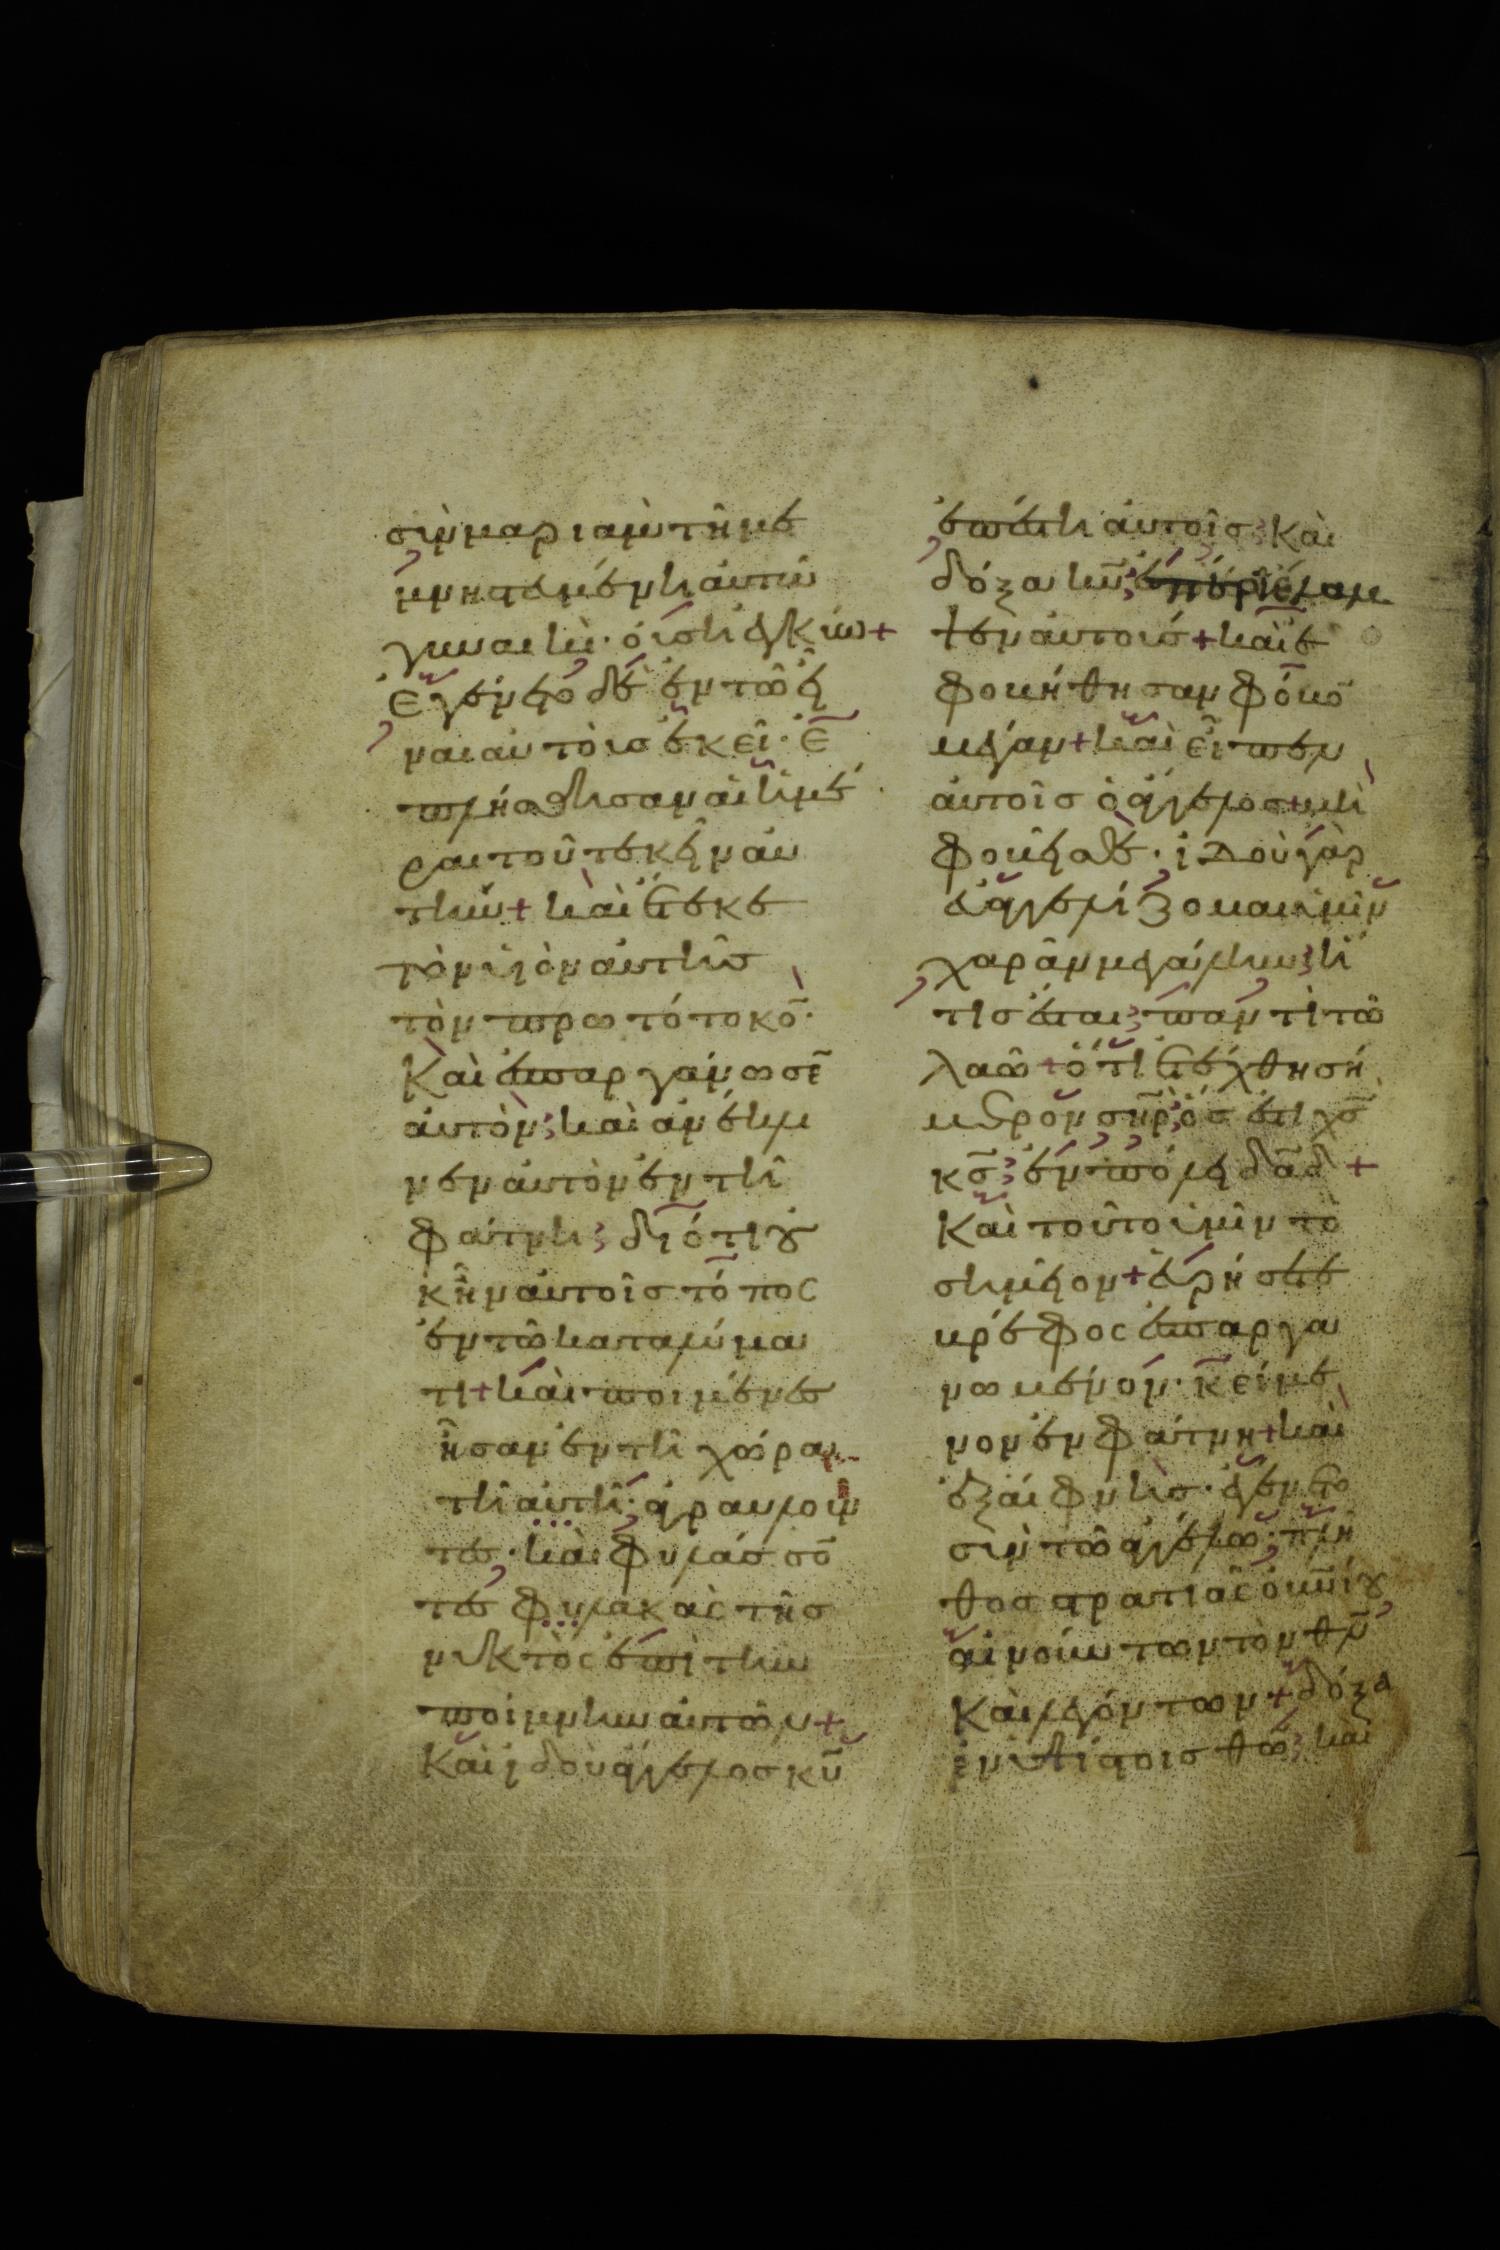 σὺν μαριὰμ τῆ με
μνηστευμένη αὐτῶ
γυναικὶ· οὔση ἐγκύω +
Ἐγένετο δὲ ἐν τῶ εἶ
ναι αὐτοὺς ἐκεῖ· ἐ
πλήσθησαν αἱ ἡμέ
ραι τοῦ τεκεῖν αὐ
τήν + καὶ ἔτεκε
τὸν υἱὸν αὐτῆς
τὸν πρωτότοκο̅·
Καὶ ἐσπαργάνωσε̅
αὐτὸν; καὶ ἀνέκλι
νεν αὐτὸν ἐν τῆ
φάτνη; διότι οὐ
κ ἦν αὐτοῖς τόπος
ἐν τῶ καταλύμα
τι + καὶ ποιμένες
ἦσαν ἐν τῆ χώρα
τῆ αὐτῆ; ἀγραυλοῦν
τες· καὶ φυλάσσο̅
τες φυλακὰς τῆς
νυκτὸς ἐπὶ τὴν
ποίμνην αὐτῶν +
Καὶ ἰδοὺ ἄγγελος κ̅υ̅
ἐπέστη αὐτοῖς; Καὶ
δόξα κ̅υ̅; ἐπεριέλαμ
ψεν αὐτοὺς + καὶ ἐ
φοβήθησαν φόβο̅
μέγαν + καὶ εἶπεν
αὐτοῖς ὁ ἄγγελος + μὴ
φοβεῖσθε· ἰδοὺ γὰρ
εὐαγγελίζομαι ὑμῖν
χαρὰν μεγάλην; ἥ
τις ἔσται; παντὶ τῶ
λαῶ + ὅτι ἐτέχθη σή
μερον σ̅η̅ρ̅; ὅς ἐστι χ̅ς̅
κ̅ς̅; ἐν πόλει δ̅α̅δ̅ +
Καὶ τοῦτο ὑμῖν τὸ
σημεῖον + εὑρήσετε
βρέφος ἐσπαργα
νωμένον· κείμε
νον ἐν φάτνη + καὶ
ἐξαίφνης· ἐγένετο
σὺν τῶ ἀγγέλω; πλῆ
θος στρατιᾶς ο̅υ̅ν̅ί̅ου
αἰνούντων τὸν θ̅ν̅
Καὶ λεγόντων + δόξα
ἐν ὑψίστοις θ̅ω̅; καὶ